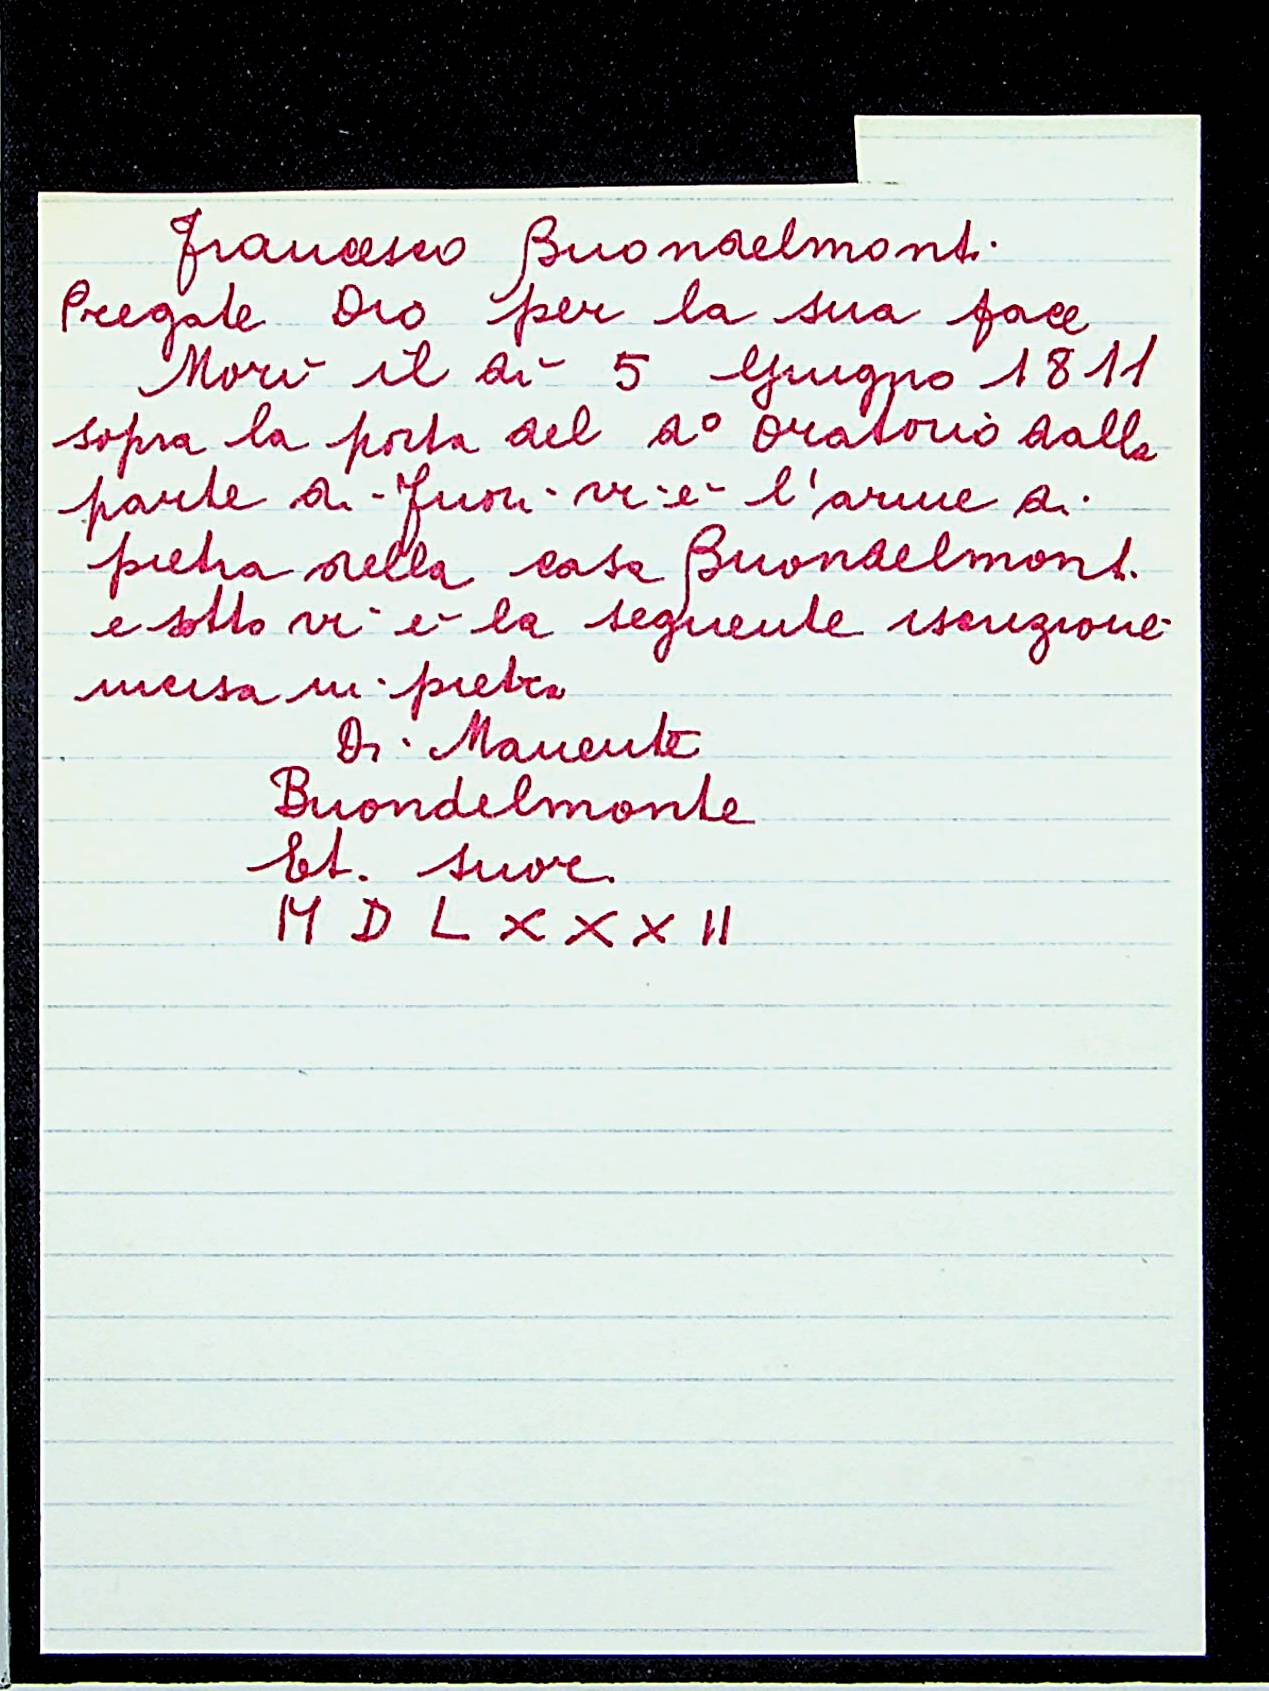 Francesco Buondelmonti
Pregate Dio per la sua pace
Morì il dì 5 Giugno 1811
sopra la porta del dº oratorio dalla
parte di fuori vi è l'arme di
pietra della casa Buondelmonti
e sotto vi è la seguente iscrizione
incisa in pietra
Di Manente
Buondelmonte
Et. suor.
M D L X X X II